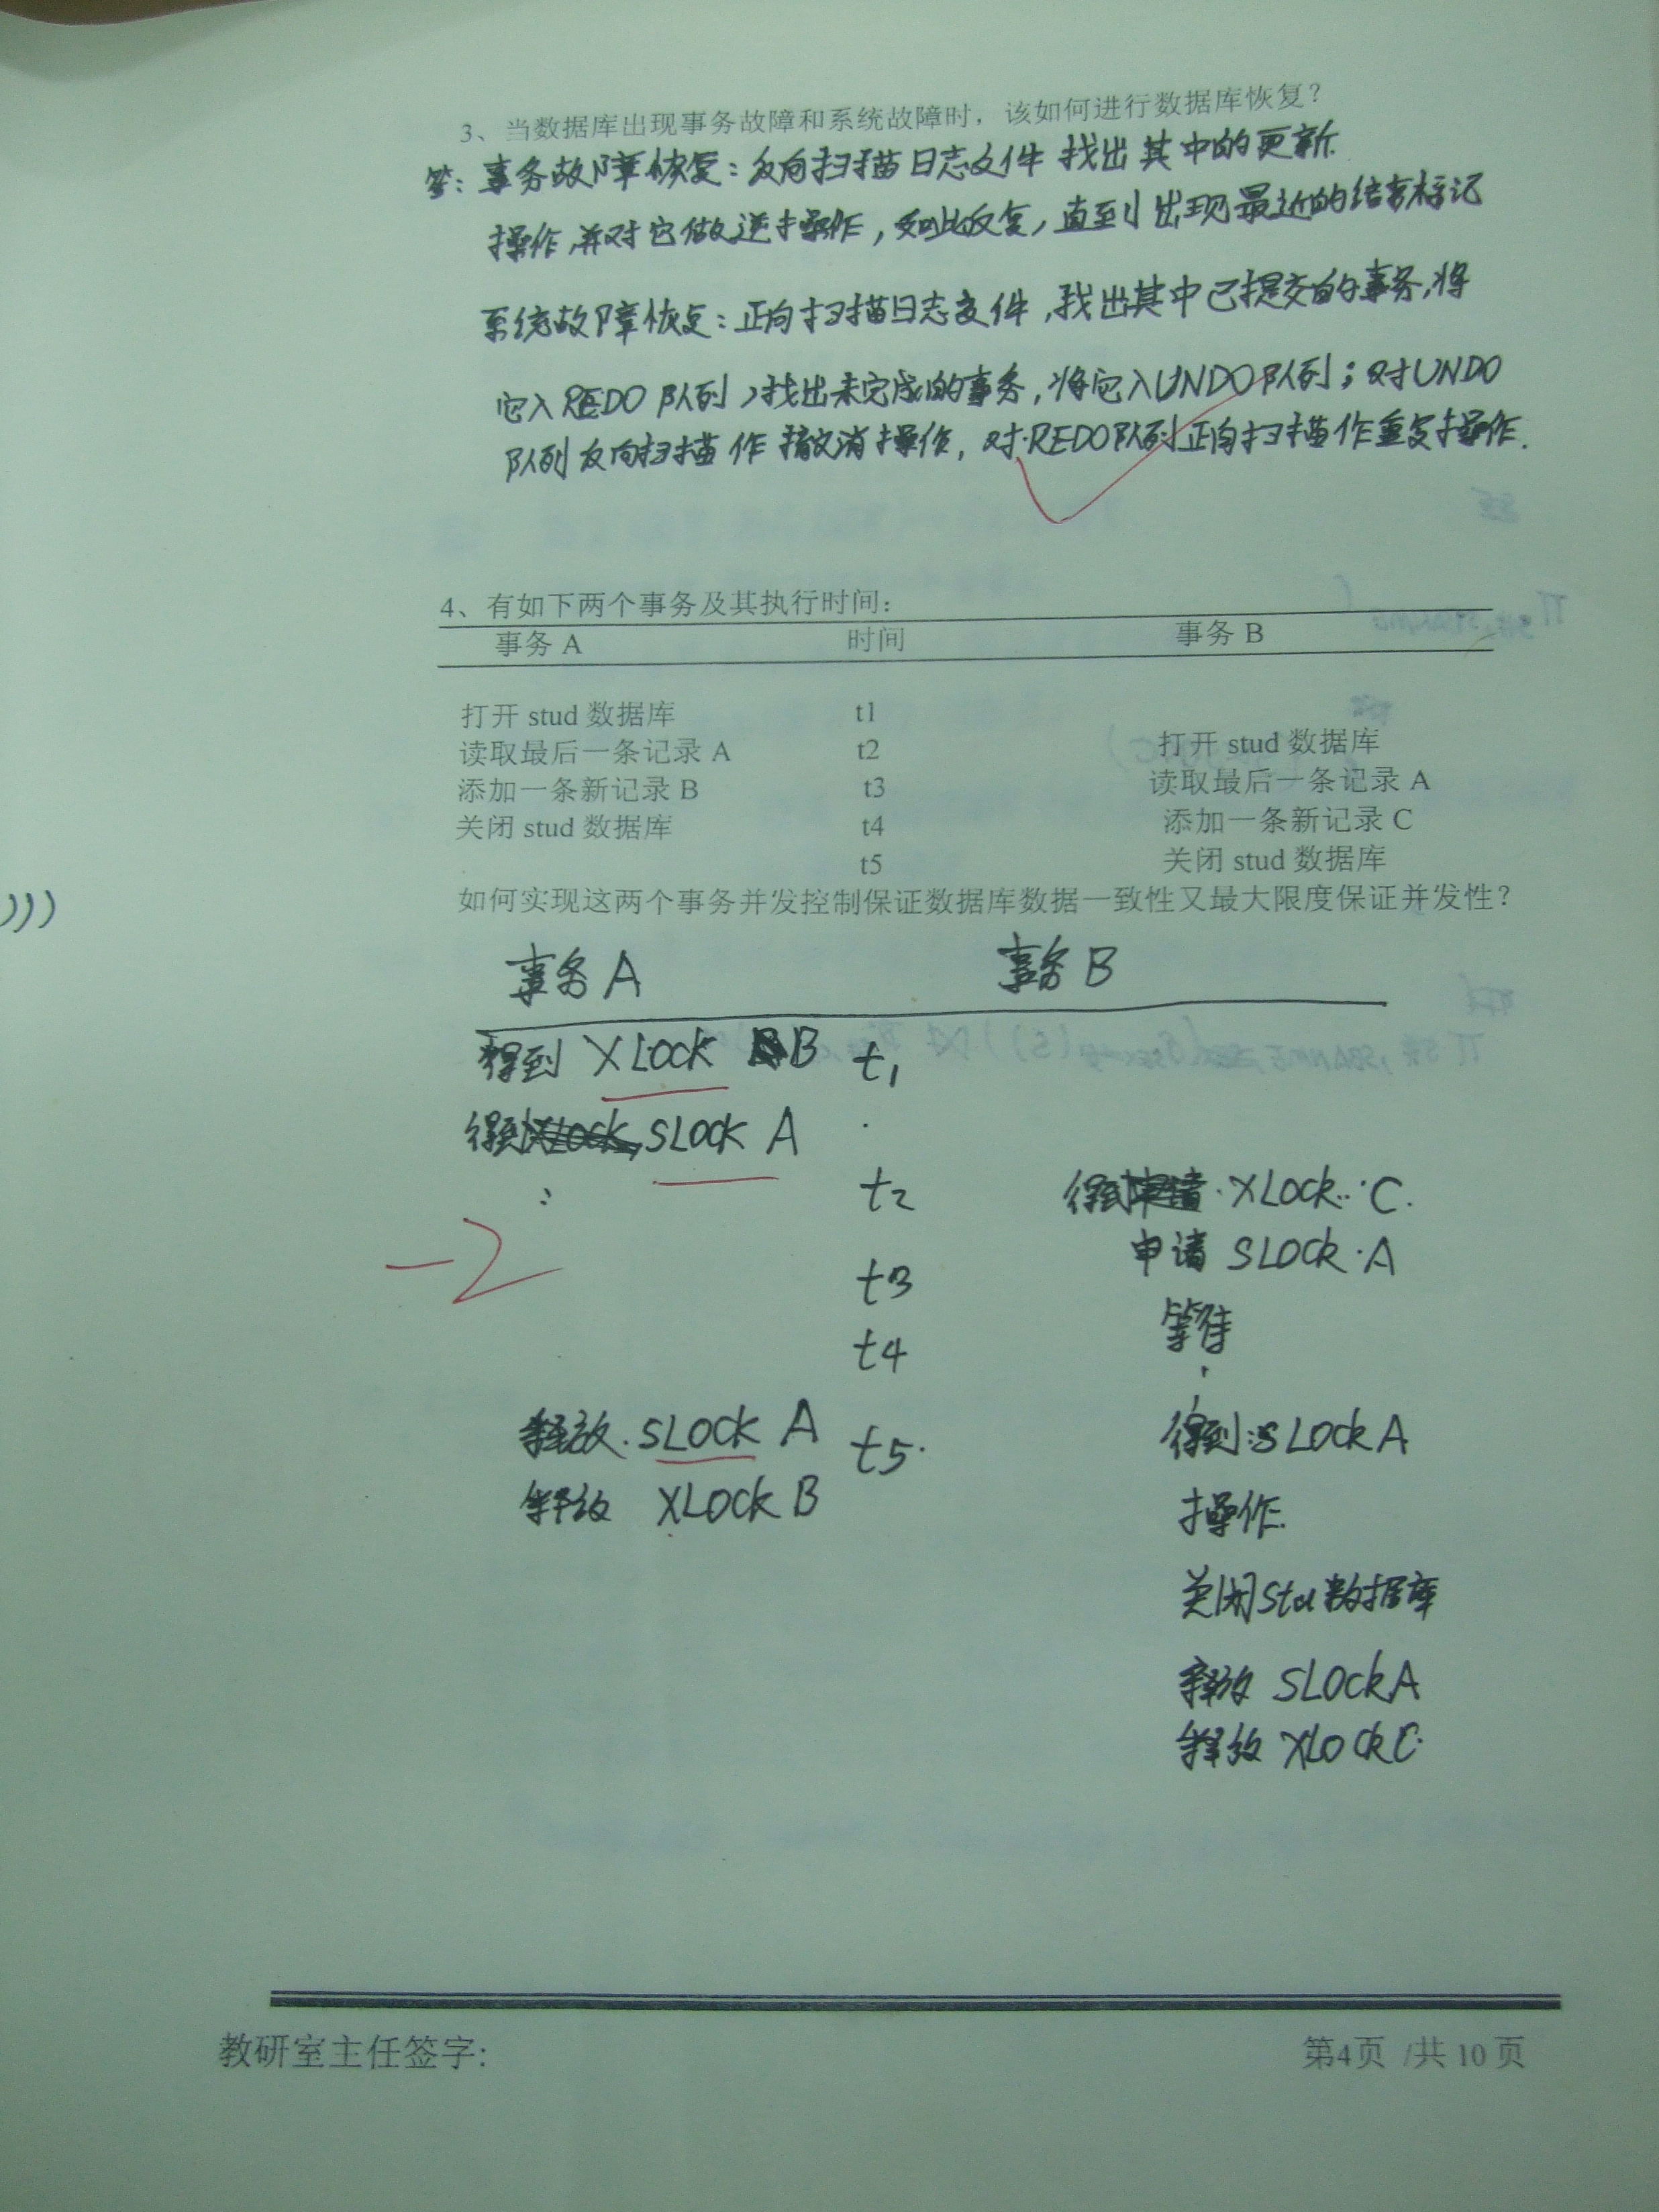 3、当数据库出现事务故障和系统故障时，该如何进行数据库恢复？
答：事务故障恢复：反向扫描日志文件 找出其中的更新
操作,并对它做逆操作，如此反复，直至到出现最近的结束标记
系统故障恢复：正向扫描日志文件,找出其中已提交的事务,将
它入REDO队列,找出未完成的事务,将它入UNDO队列；对UNDO
队列反向扫描作撤消操作，对REDO队列正向扫描作重复操作.
4、有如下两个事务及其执行时间：
事务 A 时间 事务 B
打开 stud 数据库 t1
读取最后一条记录 A t2 打开 stud 数据库
添加一条新记录 B t3 读取最后一条记录 A
关闭 stud 数据库 t4 添加一条新记录 C
t5 关闭 stud 数据库
如何实现这两个事务并发控制保证数据库数据一致性又最大限度保证并发性？
)))
事务A 事务B
得到 XLock B t1
得到 SLock A
t2 得到 XLock C.
申请 SLock A
-2
t3 等待
t4
释放 SLock A t5 得到 SLock A
释放 XLock B 操作.
关闭stu数据库
释放 SLock A
释放 XLock C
教研室主任签字:
第4页 /共 10 页